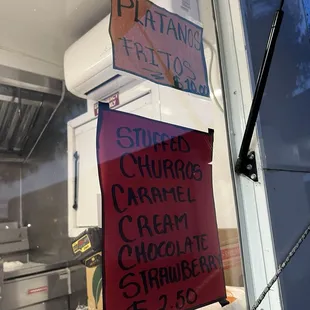 PLÁTANOS
FRITOS
STUFFED
CHURROS
CARAMEL
CREAM
CHOCOLATE
STRAWBERRY
$ 2.50